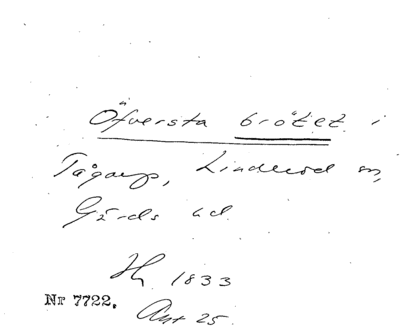 Öfversta brötet i
Tågarp, Linderöd sn,
Gärds hd.
Hy 1833
Nr 7722.
Akt 25.